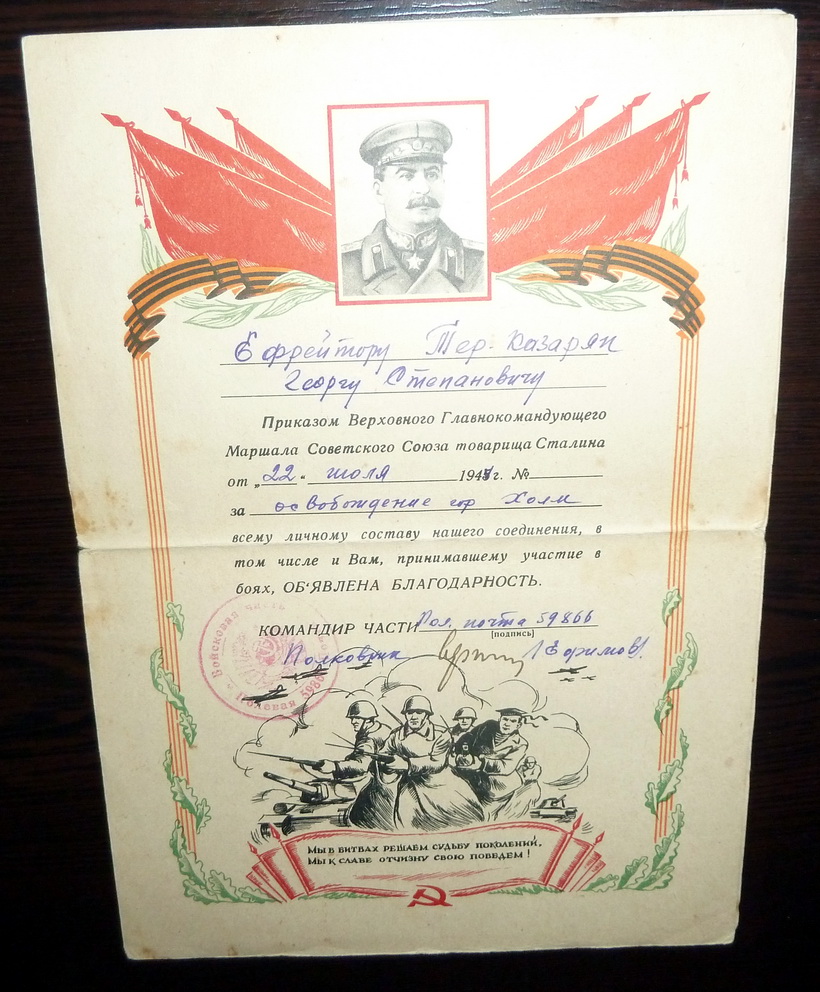 Ефрейтору Тер-Казарян
Георгу Степановичу
Приказом Верховного Главнокомандующего
Маршала Советского Союза товарища Сталина
от „22“ июля 1944г. №
за освобождение гор Холм
всему личному составу нашего соединения, в
том числе и Вам, принимавшему участие в
боях, ОБ'ЯВЛЕНА БЛАГОДАРНОСТЬ.
КОМАНДИР ЧАСТИ Пол. почта 59866
[подпись]
Полковник /Ефимов/.
Войсковая часть
Полевая 59866
МЫ В БИТВАХ РЕШАЕМ СУДЬБУ ПОКОЛЕНИЙ,
МЫ К СЛАВЕ ОТЧИЗНУ СВОЮ ПОВЕДЕМ!